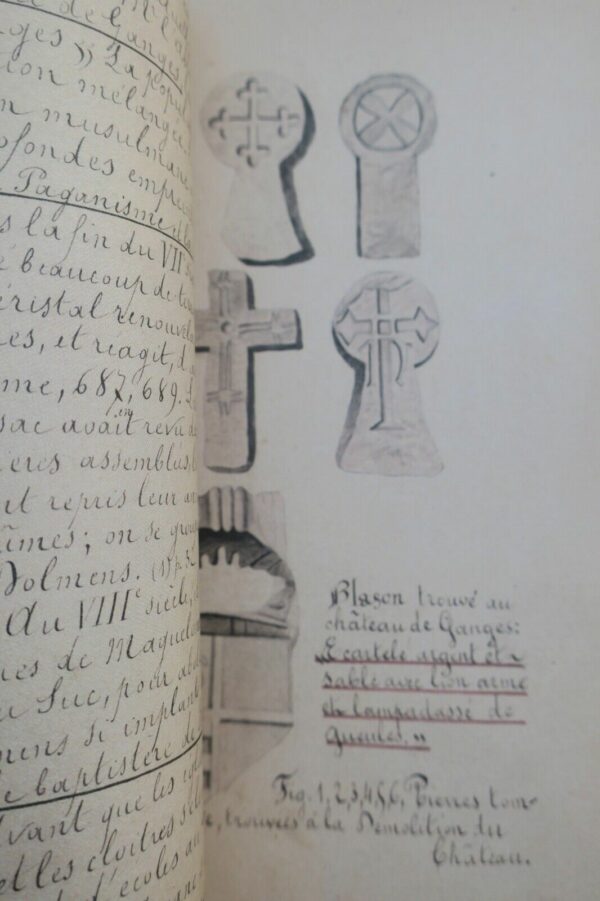 de Ganges
ges » La popul
ion mélangée
n musulmane
ofondes emprei
Paganisme et la
s la fin du VIIe s
é beaucoup de to
éristal renouvela
es, et réagit, d
me, 687, 689. L
sac avait revu
ières assemblés,
nt repris leur
ûmes; on se grou
Dolmens. (1) p. 3
Au VIIIe siècle,
es de Maguelon
u Suc, pour
mens si implant
e baptistère de
vant que les
et les cloîtres
d'écoles au
Blason trouvé au
château de Ganges:
« Ecartelé argent et
sable avec lion armé
et lampadassé de
gueules. »
Fig. 1, 2, 3, 4, 5, 6, Pierres tom-
le, trouvées à la Démolition du
Château.